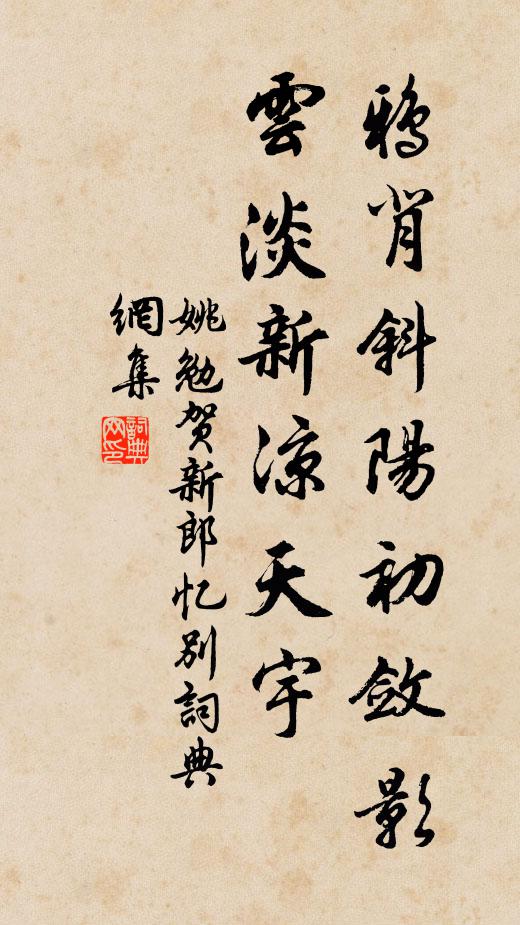 鴉背斜陽初斂影
雲淡新涼天宇
姚勉賀新郎忆別詞典
網集
詞典网印